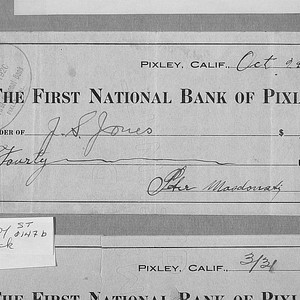 PIXLEY, CALIF., Oct. 24
THE FIRST NATIONAL BANK OF PIXL
DER OF J. S. Jones $
Fourty
Peter
ST
0147 b
PIXLEY, CALIF., 3/31
THE FIRST NATIONAL BANK OF PIXL